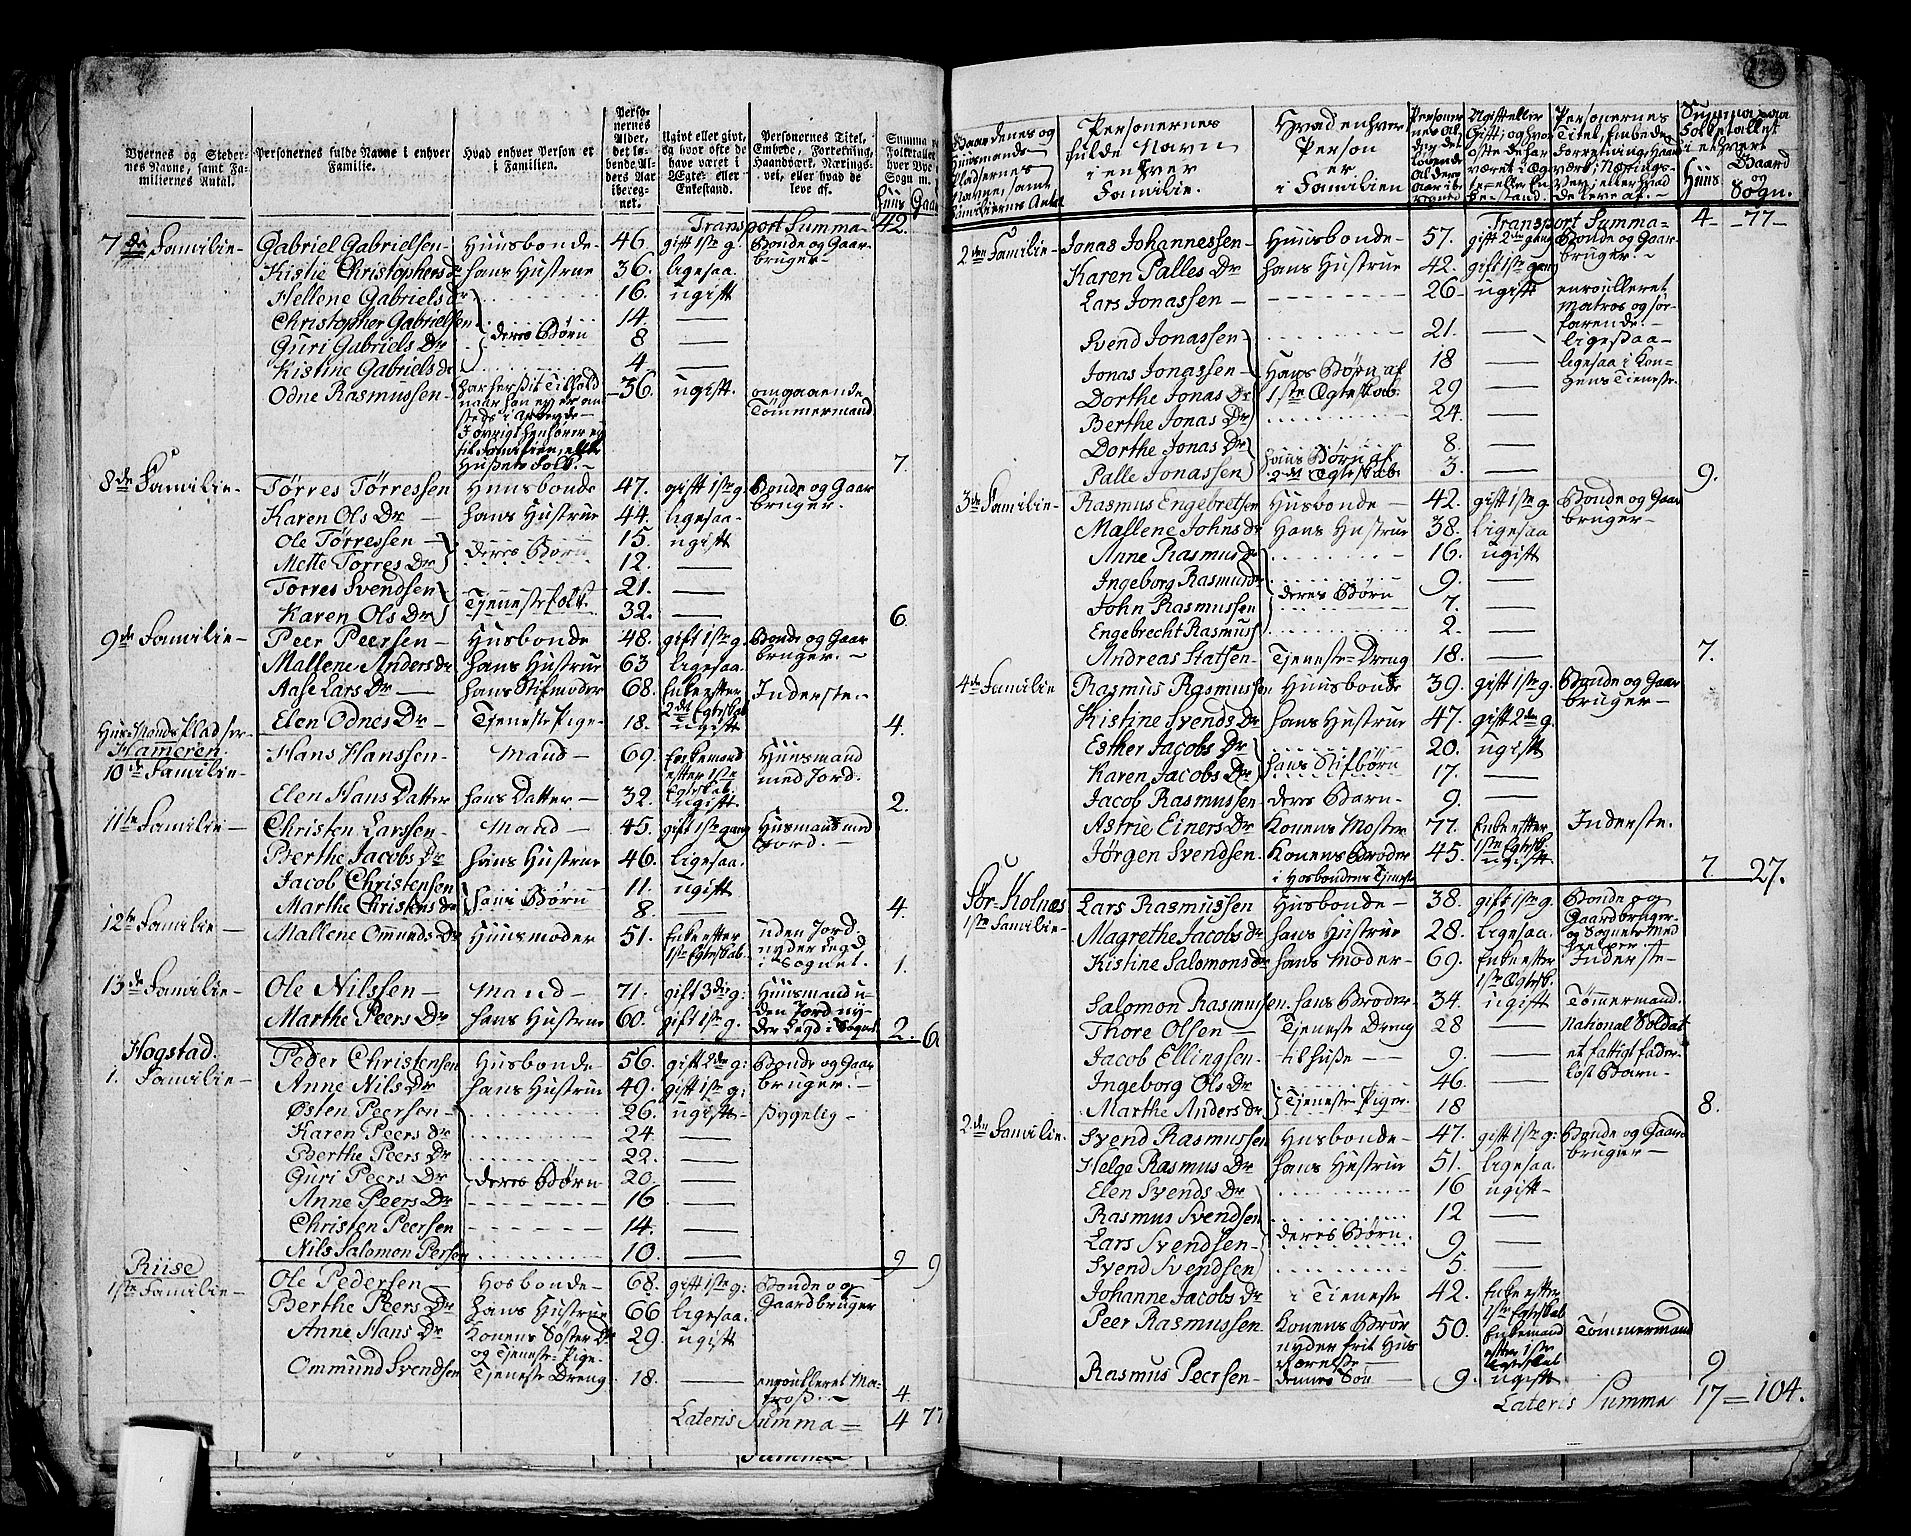 Byernes og Stedernes Navne, samt Familiernes Antal.
Personernes fulde Navne i enhver Familie.
Hvad enhver Person er i Familien.
Personernes Alder, det løbende Alders Aar iberegnet.
Ugivt eller givt, og hvor ofte de have været i Ægte- eller Enkestand.
Personernes Titel, Embede, Forretning, Haandværk, Næringsvei, eller hvad de leve af.
Huus Gaard
Transport Summa 42.
7de Familie- Gabriel Gabrielsen- Huusbonde- 46. gift 1ste g. Bonde og Gaarbruger-
Kistie Christophers Dr hans Hustrue 36. ligesaa.
Hellene Gabriels dr 16. ugift
Christopher Gabrielsen 14. —
deres Børn
Guri Gabriels Dr 8 —
Kistine Gabriels dr 4 —
Odne Rasmussen- har her sit Tilhold 36. ugift. omgaaende
naar han ey er an Tømmermand
steds i Arbeyde-
I øvrigt henhører ey
til Familien, eller
Hussets Folk. 7.
8de Familie- Tørres Tørressen Huusbonde 47. gift 1ste g. Bonde og Gaarbruger.
Karen Ols Dr — hans Hustrue 44. ligesaa-
Ole Tørressen — deres Børn 15. ugift
Mette Torres Dr 12. —
Torres Svendsen Tjenestefolk. 21. —
Karen Ols Dr 32. — 6.
9de Familie- Peer Peersen- Husbonde 48. gift 1ste g. Bonde og Gaarbruger.
Mallene Anders dr hans Hustrue 63 ligesaa.
Aase Lars Dr — hans Stifmoder 68. Enke efter 2det Egteskab Inderste.-
Elen Odnes Dr- Tjeneste Pige- 18. ugift 4.
Hus Mands Pladser-
Hameren.
10de Familie- Hans Hanssen- Mand- 69. Enkemand efter 1ste Egteskab. Huusmand med Jord.
Elen Hans Datter hans Datter- 32. ugift. 2.
11te Familie- Christen Larssen- Mand- 45. gift 1ste gang Husmand med Jord.-
Berthe Jacobs Dr hans Hustrue 46. ligesaa.
Jacob Christensen hans Børn 11. ugift
Marthe Christens dr 8. — 4.
12te Familie- Mallene Omunds Dr Huusmoder 51. Enke efter 1ste Egteskab. uden Jord. nyder Legd i Sognet. 1.
13de Familie- Ole Nilssen- Mand- 71. gift 3die g: Huusmand u-
Marthe Peers Dr hans Hustrue 60. gift 1ste g. den Jord nyder Legd i Sognet 2. 6
Hogstad.
1. Familie- Peder Christensen Husbonde 56. gift 2den g: Bonde og Gaarbruger.-
Anne Nils Dr hans Hustrue 49. gift 1ste g:
Østen Peersen- 26. ugift- sygelig-
Karen Peers dr 24. —
Berthe Peers Dr 22. —
Guri Peers Dr deres Børn 20. —
Anne Peers Dr 16 —
Christen Peersen 14. —
Nils Salomon Persen 10. — 9 9
Riise
1ste Familie- Ole Pedersen- Hosbonde- 68. gift 1ste g: Bonde og Gaardbruger
Berthe Peers Dr hans Hustrue 66 ligesaa.
Anne Hans Dr Konens Søster Dr og Tjeneste-Pige- 29. ugift
Ommund Svendsen Tjeneste Dreng 18. — enroulleret Matross.- 4.
Lateris Summa = 4 77
Summa
Gaardenes og Huusmands Pladsernes Navne, samt Familiernes Antal
Personernes fulde Navn i enhver Familie.
Hvad enhver Person er i Familien
Personernes Alder det løbende Alders Aar iberegnet
Ugift eller Gift; og hvor ofte de har været i Ægte- eller Enkestand.
Personernes Titel, Embede Forretning, Haandværk, Næringsvey, eller hvad de leve af.-
Summa paa Folketallet i ethvert
Huus Gaard og Sogn.
Transport Summa= 4- -77-
2den Familie- Jonas Johannessen- Huusbonde- 57. gift 2den gang Bonde og Gaarbruger.-
Karen Palles Dr hans Hustrue 42. gift 1ste gang
Lars Jonassen- 26- ugift enroulleret Matros og søfarende.-
Svend Jonassen 21. — ligesaa-
Jonas Jonassen- Hans Børn af 18 — ligesaa i Kon-
Dorthe Jonas Dr 1ste Ægteskab. 29 — gens Tieneste-
Berthe Jonas Dr 24. —
Dorthe Jonas Dr hans Børn af 8. —
Palle Jonassen 2det Ægteskab. 3. — 9.
3de Familie- Rasmus Engebretsen Husbonde- 42. gift 1ste g. Bonde og Gaarbruger-
Mallene Johns dr Hans Hustrue 38. ligesaa
Anne Rasmus dr 16. ugift
Ingeborg Rasmus dr 9. —
deres Børn
John Rasmussen 7. —
Engebrecht Rasmuss 2. —
Andreas Statsen- Tjeneste-Dreng 18. — 7.
4de Familie Rasmus Rasmussen Huusbonde 39. gift 1ste g. Bonde og Gaarbruger-
Kistine Svends Dr hans Hustrue 47. gift 2den g.
Esther Jacobs Dr 20. ugift
Karen Jacobs Dr hans Stifbørn 17. —
Jacob Rasmussen- deres Barn- 9. —
Astrie Einers Dr Konens Moster 77. Enke efter 1ste Egtesk. Inderste.
Jørgen Svendsen. Konens Broder i Hosbondens Tjeneste 45. ugift. 7 27.
Sør-Kolnæs
1ste Familie- Lars Rasmussen Husbonde- 38. gift 1ste g. Bonde og Gaardbruger- og Sognets Medhielper.-
Magrethe Jacobs Dr hans Hustrue 28. ligesaa.
Kistine Salomons dr hans Moder- 69. Enke efter 1ste Ægtesk. Inderste-
Salomon Rasmussen. hans Broder- 34. ugift Tømmermand.
Thore Olsen- Tjeneste Dreng 28 — National Soldat
Jacob Ellingsen. til huse- 9. — et fattigt faderløst Barn-
Ingeborg Ols Dr 46. —
Marthe Anders dr Tjeneste Piger. 18 8.
2den Familie. Svend Rasmussen Husbonde- 47. gift 1ste g: Bonde og Gaardbruger-
Helge Rasmus Dr hans Hustrue 51. ligesaa.
Elen Svends Dr 16 ugift-
Rasmus Svendsen 12 —
Lars Svendsen- deres Børn. 9 —
Svend Svendsen 5. —
Johanne Jacobs Dr i Tieneste 42. Enke efter 1ste Egteskab
Peer Rasmussen Konens Brør nyder frit Husværelse- 50. Enkemand efter 1ste Egteskab Tømmermand
Rasmus Peersen- dennes Søn- 9. ugift 9
Lateris Summa 17 = 104.